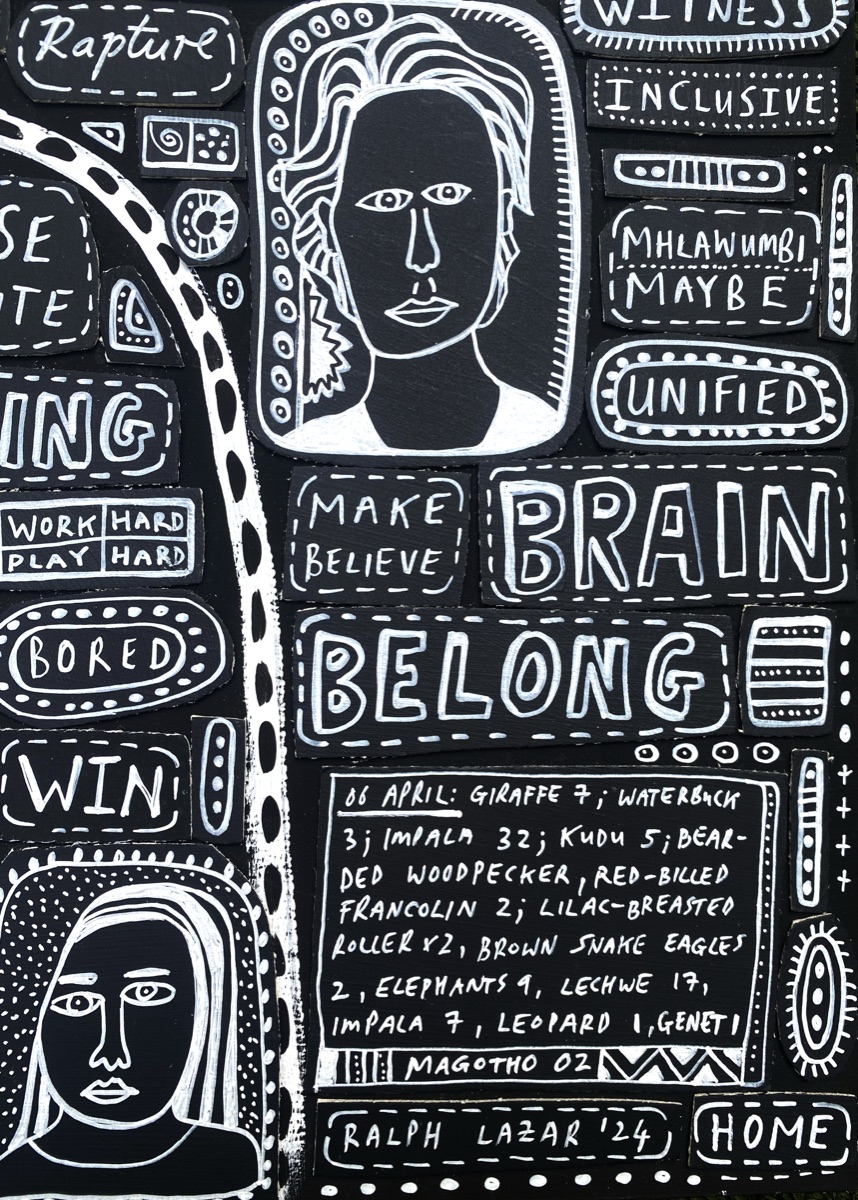 Rapture
WITNESS
INCLUSIVE
MHLAWUMBI
MAYBE
SE
ITE
UNIFIED
ING
MAKE
BELIEVE
BRAIN
WORK HARD
PLAY HARD
BORED
BELONG
WIN
06 APRIL: GIRAFFE 7; WATERBUCK
3; IMPALA 32; KUDU 5; BEAR-
DED WOODPECKER, RED-BILLED
FRANCOLIN 2; LILAC-BREASTED
ROLLER x2, BROWN SNAKE EAGLES
2, ELEPHANTS 9, LECHWE 17,
IMPALA 7, LEOPARD 1, GENET 1
MAGOTHO 02
RALPH LAZAR '24
HOME